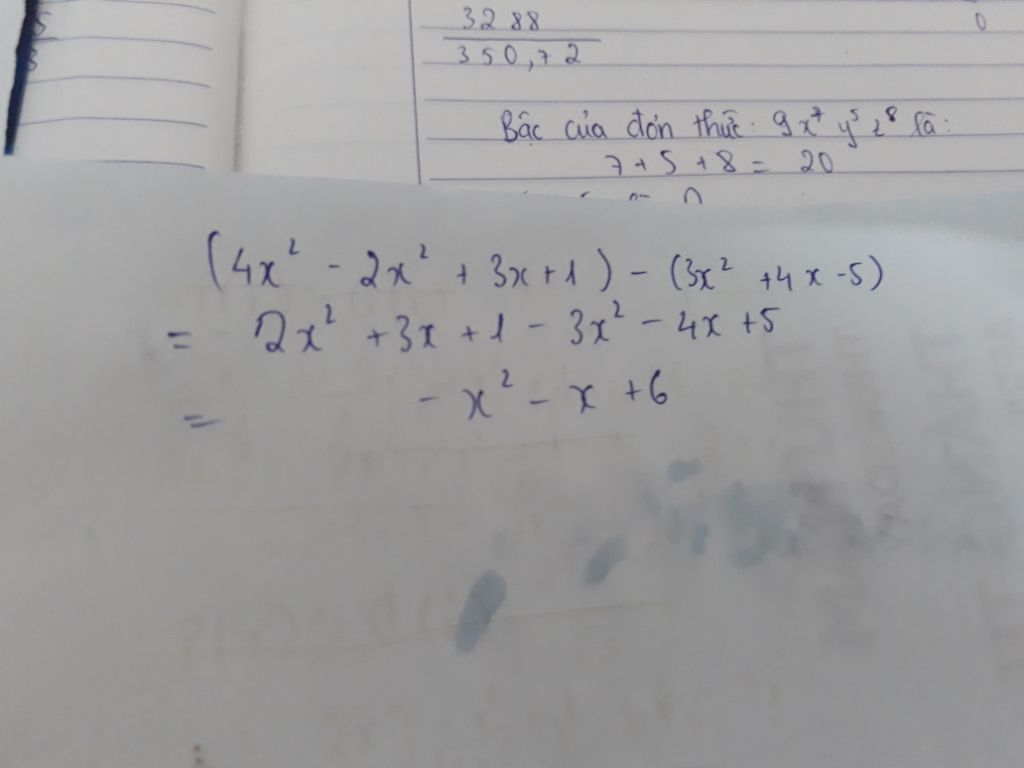 3288
350,72
0
Bậc của đơn thức: 9x⁷ y⁵ z⁸ là:
7+5+8= 20
(4x² - 2x² + 3x+1) - (3x² +4x -5)
= 2x² +3x +1 - 3x² - 4x +5
= - x² - x +6